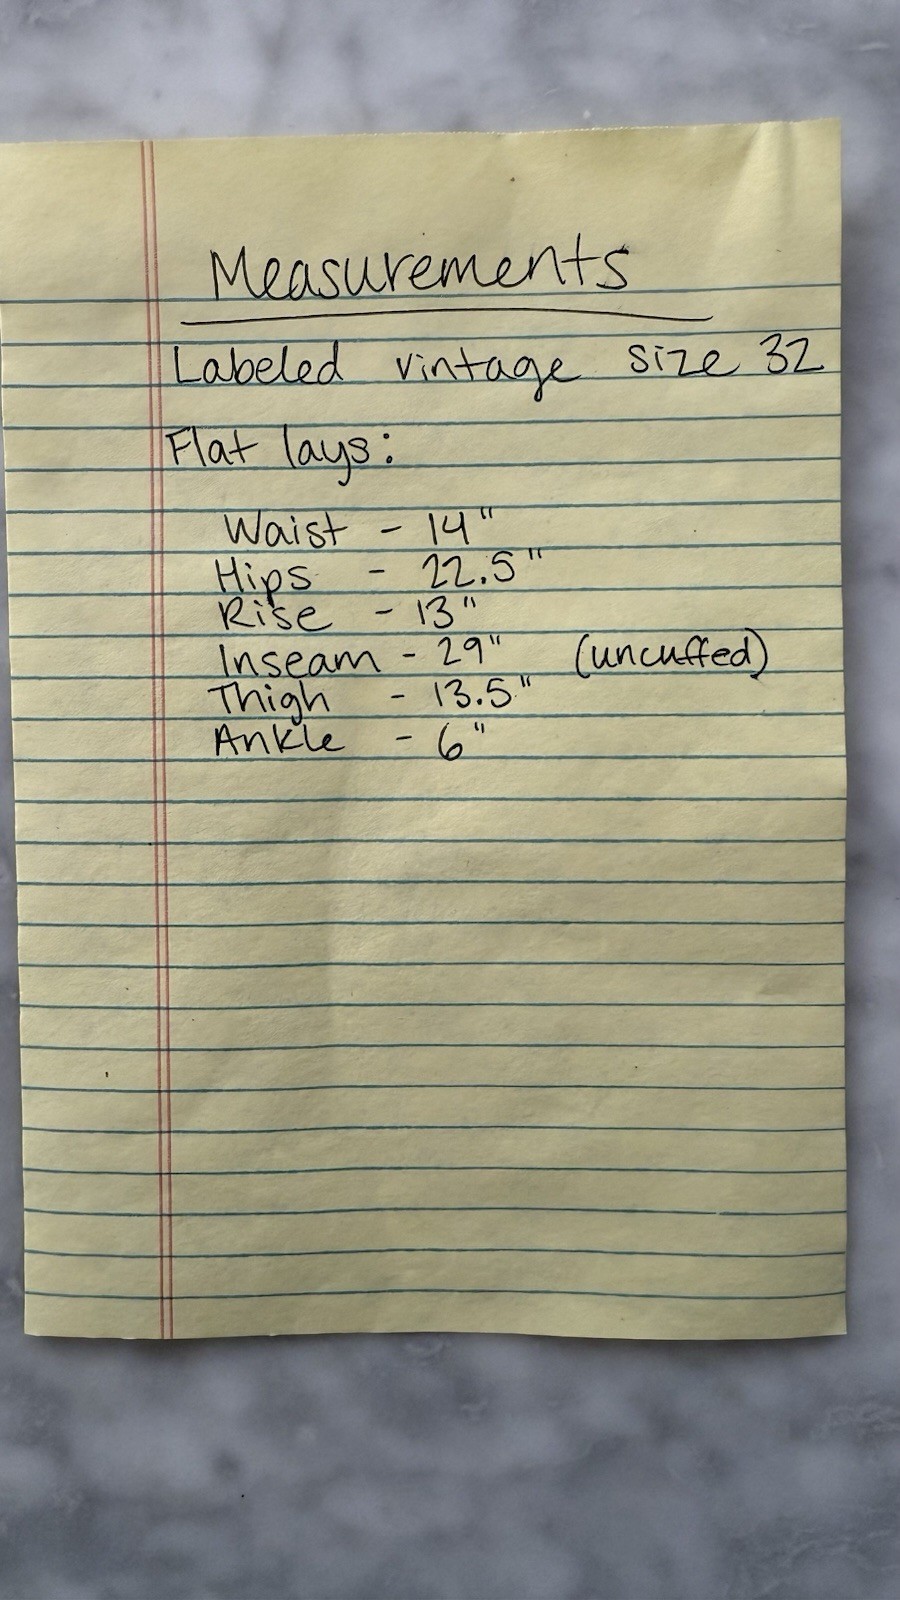 Measurements
Labeled vintage size 32
Flat lays:
Waist - 14"
Hips - 22.5"
Rise - 13"
Inseam - 29" (uncuffed)
Thigh - 13.5"
Ankle - 6"